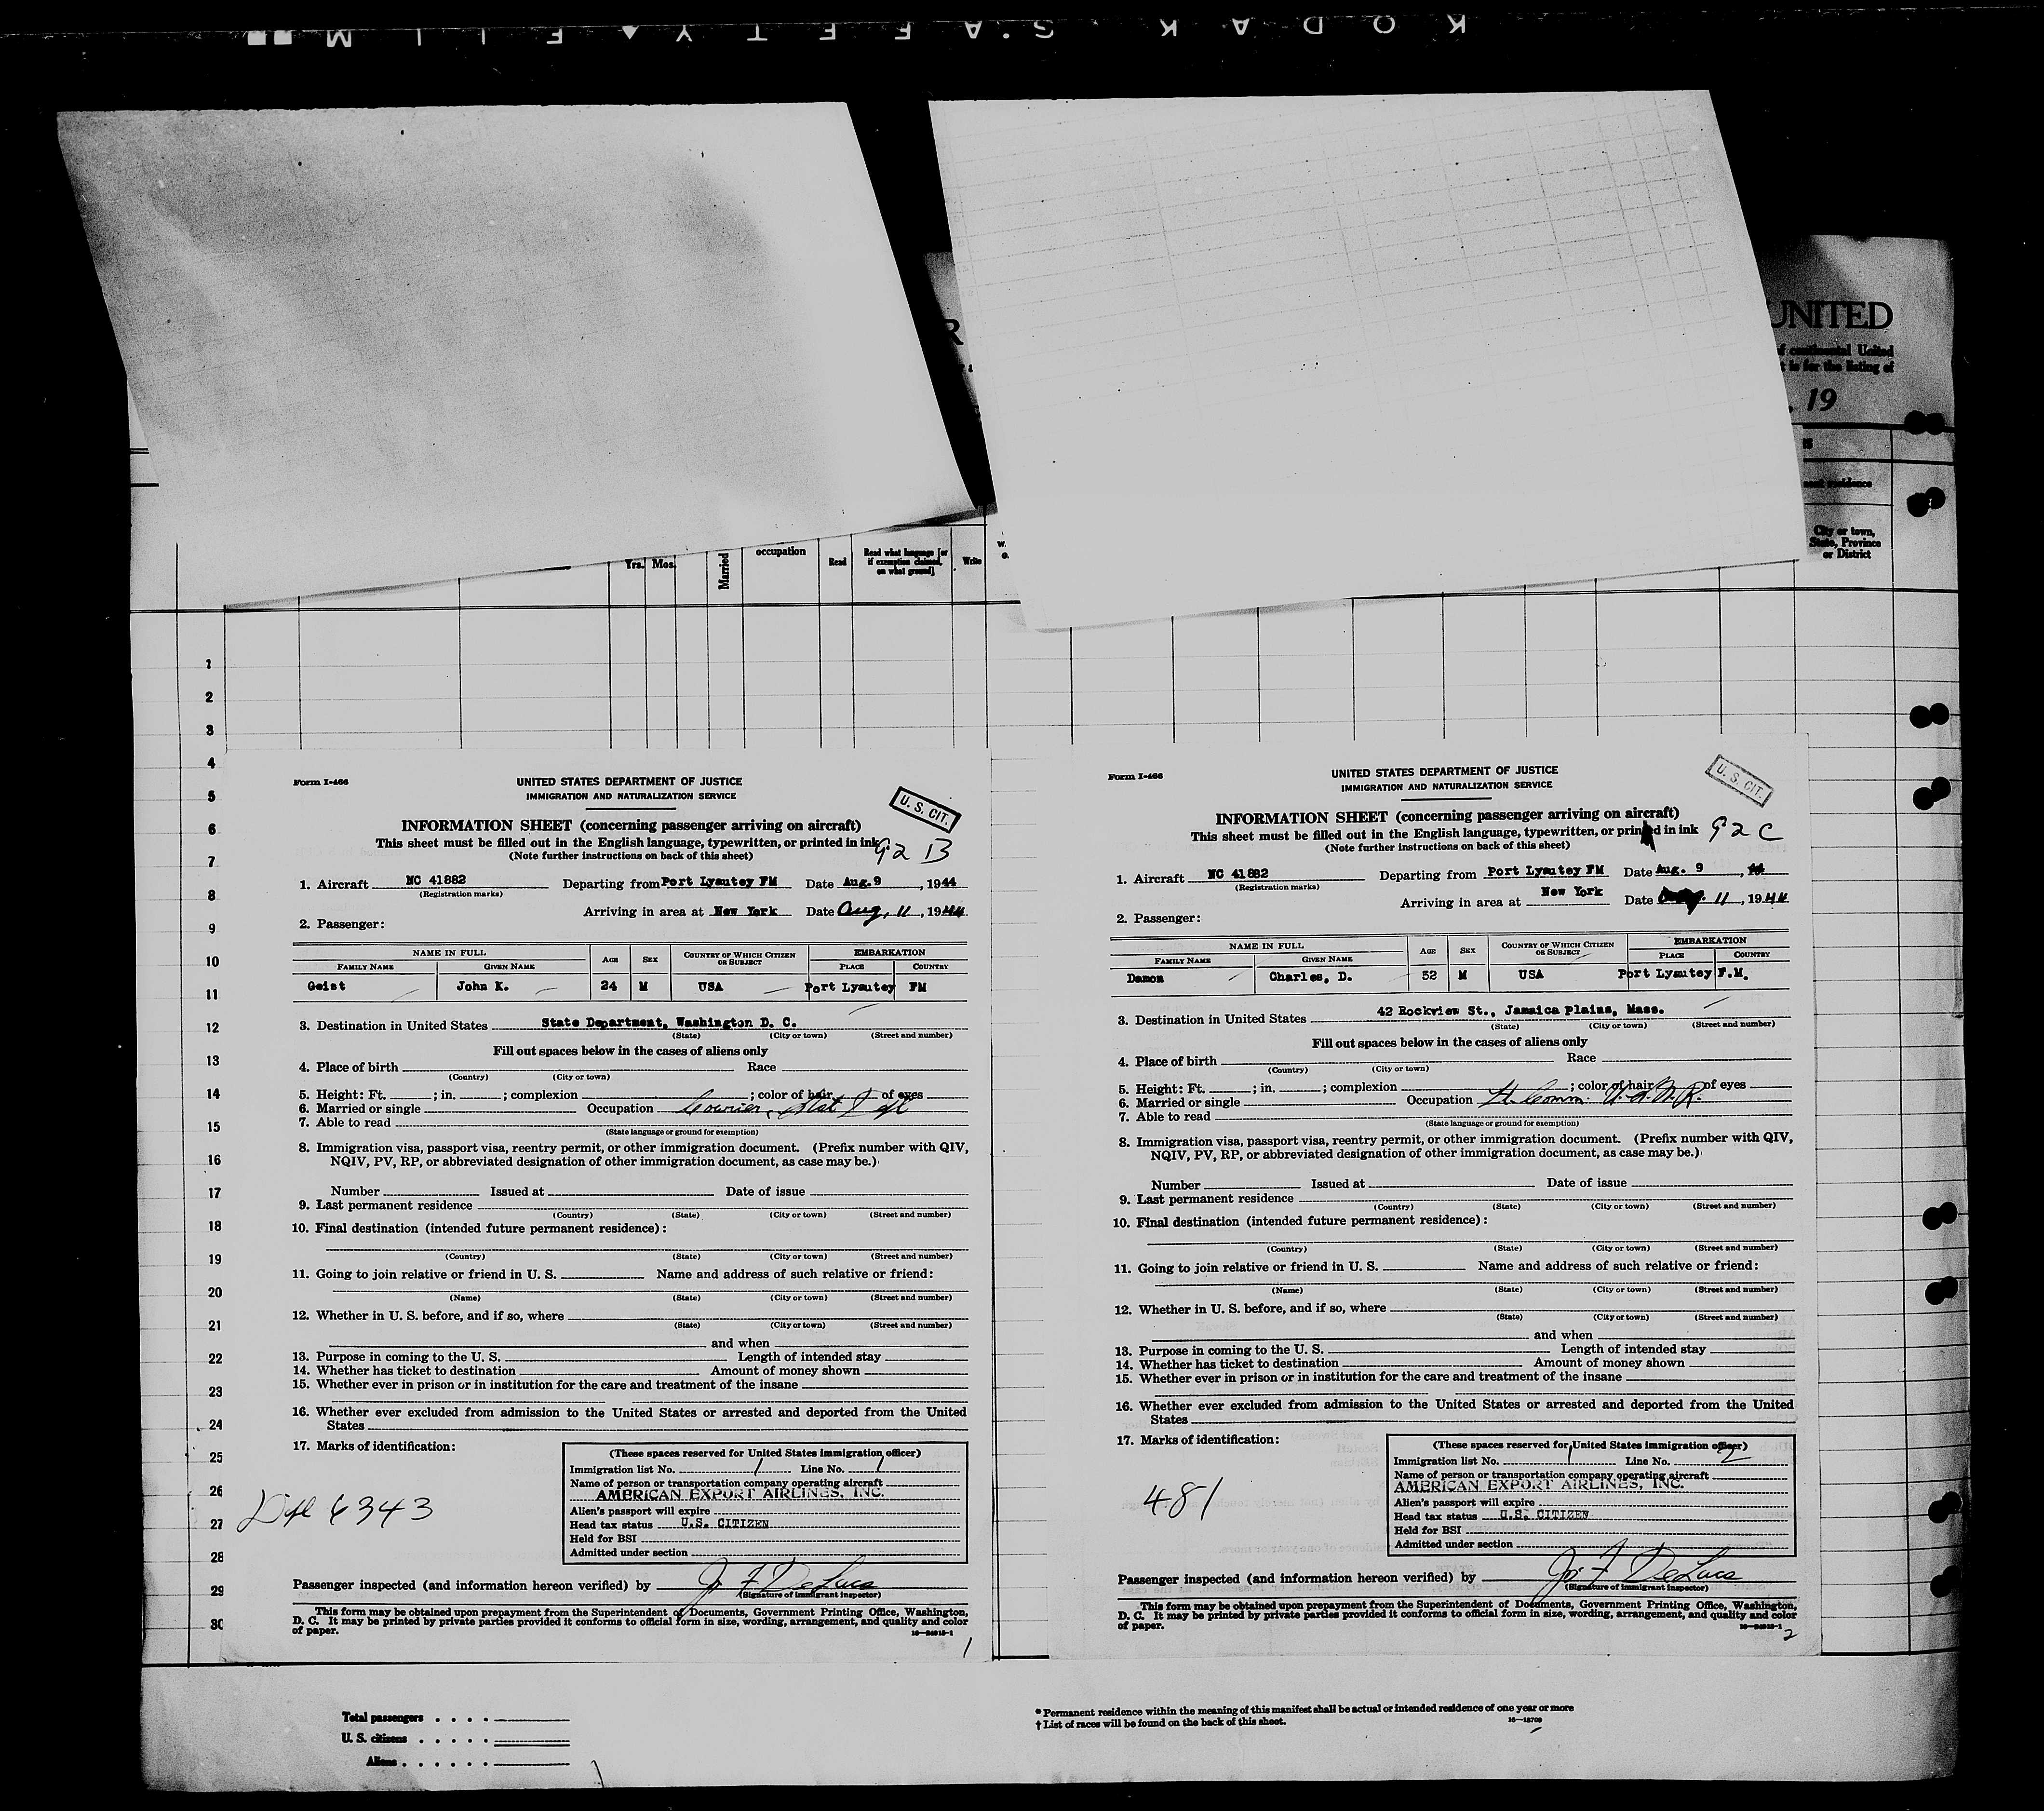 KODAK SAFETY FILM
R
UNITED
of continental United
t is for the listing of
, 19
15
nent residence
City or town,
State, Province
or District
Yrs. Mos.
Married
occupation
Read
Read what language [or
if exemption claimed,
on what ground]
Write
w.
o.
1
2
3
4
5
6
7
8
9
10
11
12
13
14
15
16
17
18
19
20
21
22
23
24
25
26
27
28
29
30
Form I-466
UNITED STATES DEPARTMENT OF JUSTICE
IMMIGRATION AND NATURALIZATION SERVICE
U. S. CIT.
INFORMATION SHEET (concerning passenger arriving on aircraft)
This sheet must be filled out in the English language, typewritten, or printed in ink
92 B
(Note further instructions on back of this sheet)
1. Aircraft NC 41882 Departing from Port Lyautey FM Date Aug. 9, 1944
(Registration marks)
Arriving in area at New York Date Aug. 11, 1944
2. Passenger:
NAME IN FULL AGE SEX COUNTRY OF WHICH CITIZEN OR SUBJECT EMBARKATION
FAMILY NAME GIVEN NAME PLACE COUNTRY
Geist John K. 24 M USA Port Lyautey FM
3. Destination in United States State Department, Washington D. C.
(State) (City or town) (Street and number)
Fill out spaces below in the cases of aliens only
4. Place of birth Race
(Country) (City or town)
5. Height: Ft. ; in. ; complexion ; color of hair of eyes
6. Married or single Occupation Courier, Stat Dept
7. Able to read
(State language or ground for exemption)
8. Immigration visa, passport visa, reentry permit, or other immigration document. (Prefix number with QIV,
NQIV, PV, RP, or abbreviated designation of other immigration document, as case may be.)
Number Issued at Date of issue
9. Last permanent residence
(Country) (State) (City or town) (Street and number)
10. Final destination (intended future permanent residence):
(Country) (State) (City or town) (Street and number)
11. Going to join relative or friend in U. S. Name and address of such relative or friend:
(Name) (State) (City or town) (Street and number)
12. Whether in U. S. before, and if so, where
(State) (City or town) (Street and number)
and when
13. Purpose in coming to the U. S. Length of intended stay
14. Whether has ticket to destination Amount of money shown
15. Whether ever in prison or in institution for the care and treatment of the insane
16. Whether ever excluded from admission to the United States or arrested and deported from the United
States
17. Marks of identification:
(These spaces reserved for United States immigration officer)
Immigration list No. 1 Line No. 1
Name of person or transportation company operating aircraft
AMERICAN EXPORT AIRLINES, INC.
Alien's passport will expire
Head tax status U.S. CITIZEN
Held for BSI
Admitted under section
6343
Passenger inspected (and information hereon verified) by Jo F DeLuca
(Signature of immigrant inspector)
This form may be obtained upon prepayment from the Superintendent of Documents, Government Printing Office, Washington,
D. C. It may be printed by private parties provided it conforms to official form in size, wording, arrangement, and quality and color
of paper.
1
Form I-466
UNITED STATES DEPARTMENT OF JUSTICE
IMMIGRATION AND NATURALIZATION SERVICE
U. S. CIT.
INFORMATION SHEET (concerning passenger arriving on aircraft)
This sheet must be filled out in the English language, typewritten, or printed in ink
92 C
(Note further instructions on back of this sheet)
1. Aircraft NC 41882 Departing from Port Lyautey FM Date Aug. 9, 44
(Registration marks)
Arriving in area at New York Date 11, 1944
2. Passenger:
NAME IN FULL AGE SEX COUNTRY OF WHICH CITIZEN OR SUBJECT EMBARKATION
FAMILY NAME GIVEN NAME PLACE COUNTRY
Damon Charles, D. 52 M USA Port Lyautey F.M.
3. Destination in United States 42 Rockview St., Jamaica Plains, Mass.
(State) (City or town) (Street and number)
Fill out spaces below in the cases of aliens only
4. Place of birth Race
(Country) (City or town)
5. Height: Ft. ; in. ; complexion ; color of hair of eyes
6. Married or single Occupation Lt Comm. U.S.N.R.
7. Able to read
(State language or ground for exemption)
8. Immigration visa, passport visa, reentry permit, or other immigration document. (Prefix number with QIV,
NQIV, PV, RP, or abbreviated designation of other immigration document, as case may be.)
Number Issued at Date of issue
9. Last permanent residence
(Country) (State) (City or town) (Street and number)
10. Final destination (intended future permanent residence):
(Country) (State) (City or town) (Street and number)
11. Going to join relative or friend in U. S. Name and address of such relative or friend:
(Name) (State) (City or town) (Street and number)
12. Whether in U. S. before, and if so, where
(State) (City or town) (Street and number)
and when
13. Purpose in coming to the U. S. Length of intended stay
14. Whether has ticket to destination Amount of money shown
15. Whether ever in prison or in institution for the care and treatment of the insane
16. Whether ever excluded from admission to the United States or arrested and deported from the United
States
17. Marks of identification:
(These spaces reserved for United States immigration officer)
Immigration list No. 1 Line No. 2
Name of person or transportation company operating aircraft
AMERICAN EXPORT AIRLINES, INC.
Alien's passport will expire
Head tax status U.S. CITIZEN
Held for BSI
Admitted under section
481
Passenger inspected (and information hereon verified) by Jo. F DeLuca
(Signature of immigrant inspector)
This form may be obtained upon prepayment from the Superintendent of Documents, Government Printing Office, Washington,
D. C. It may be printed by private parties provided it conforms to official form in size, wording, arrangement, and quality and color
of paper.
2
Total passengers . . . .
U. S. citizens . . . . .
Aliens . . . . . .
* Permanent residence within the meaning of this manifest shall be actual or intended residence of one year or more
† List of races will be found on the back of this sheet.